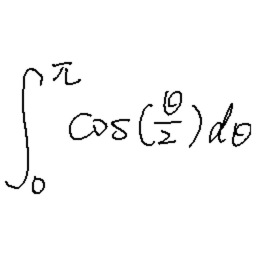 ∫₀^π cos(θ/2)dθ